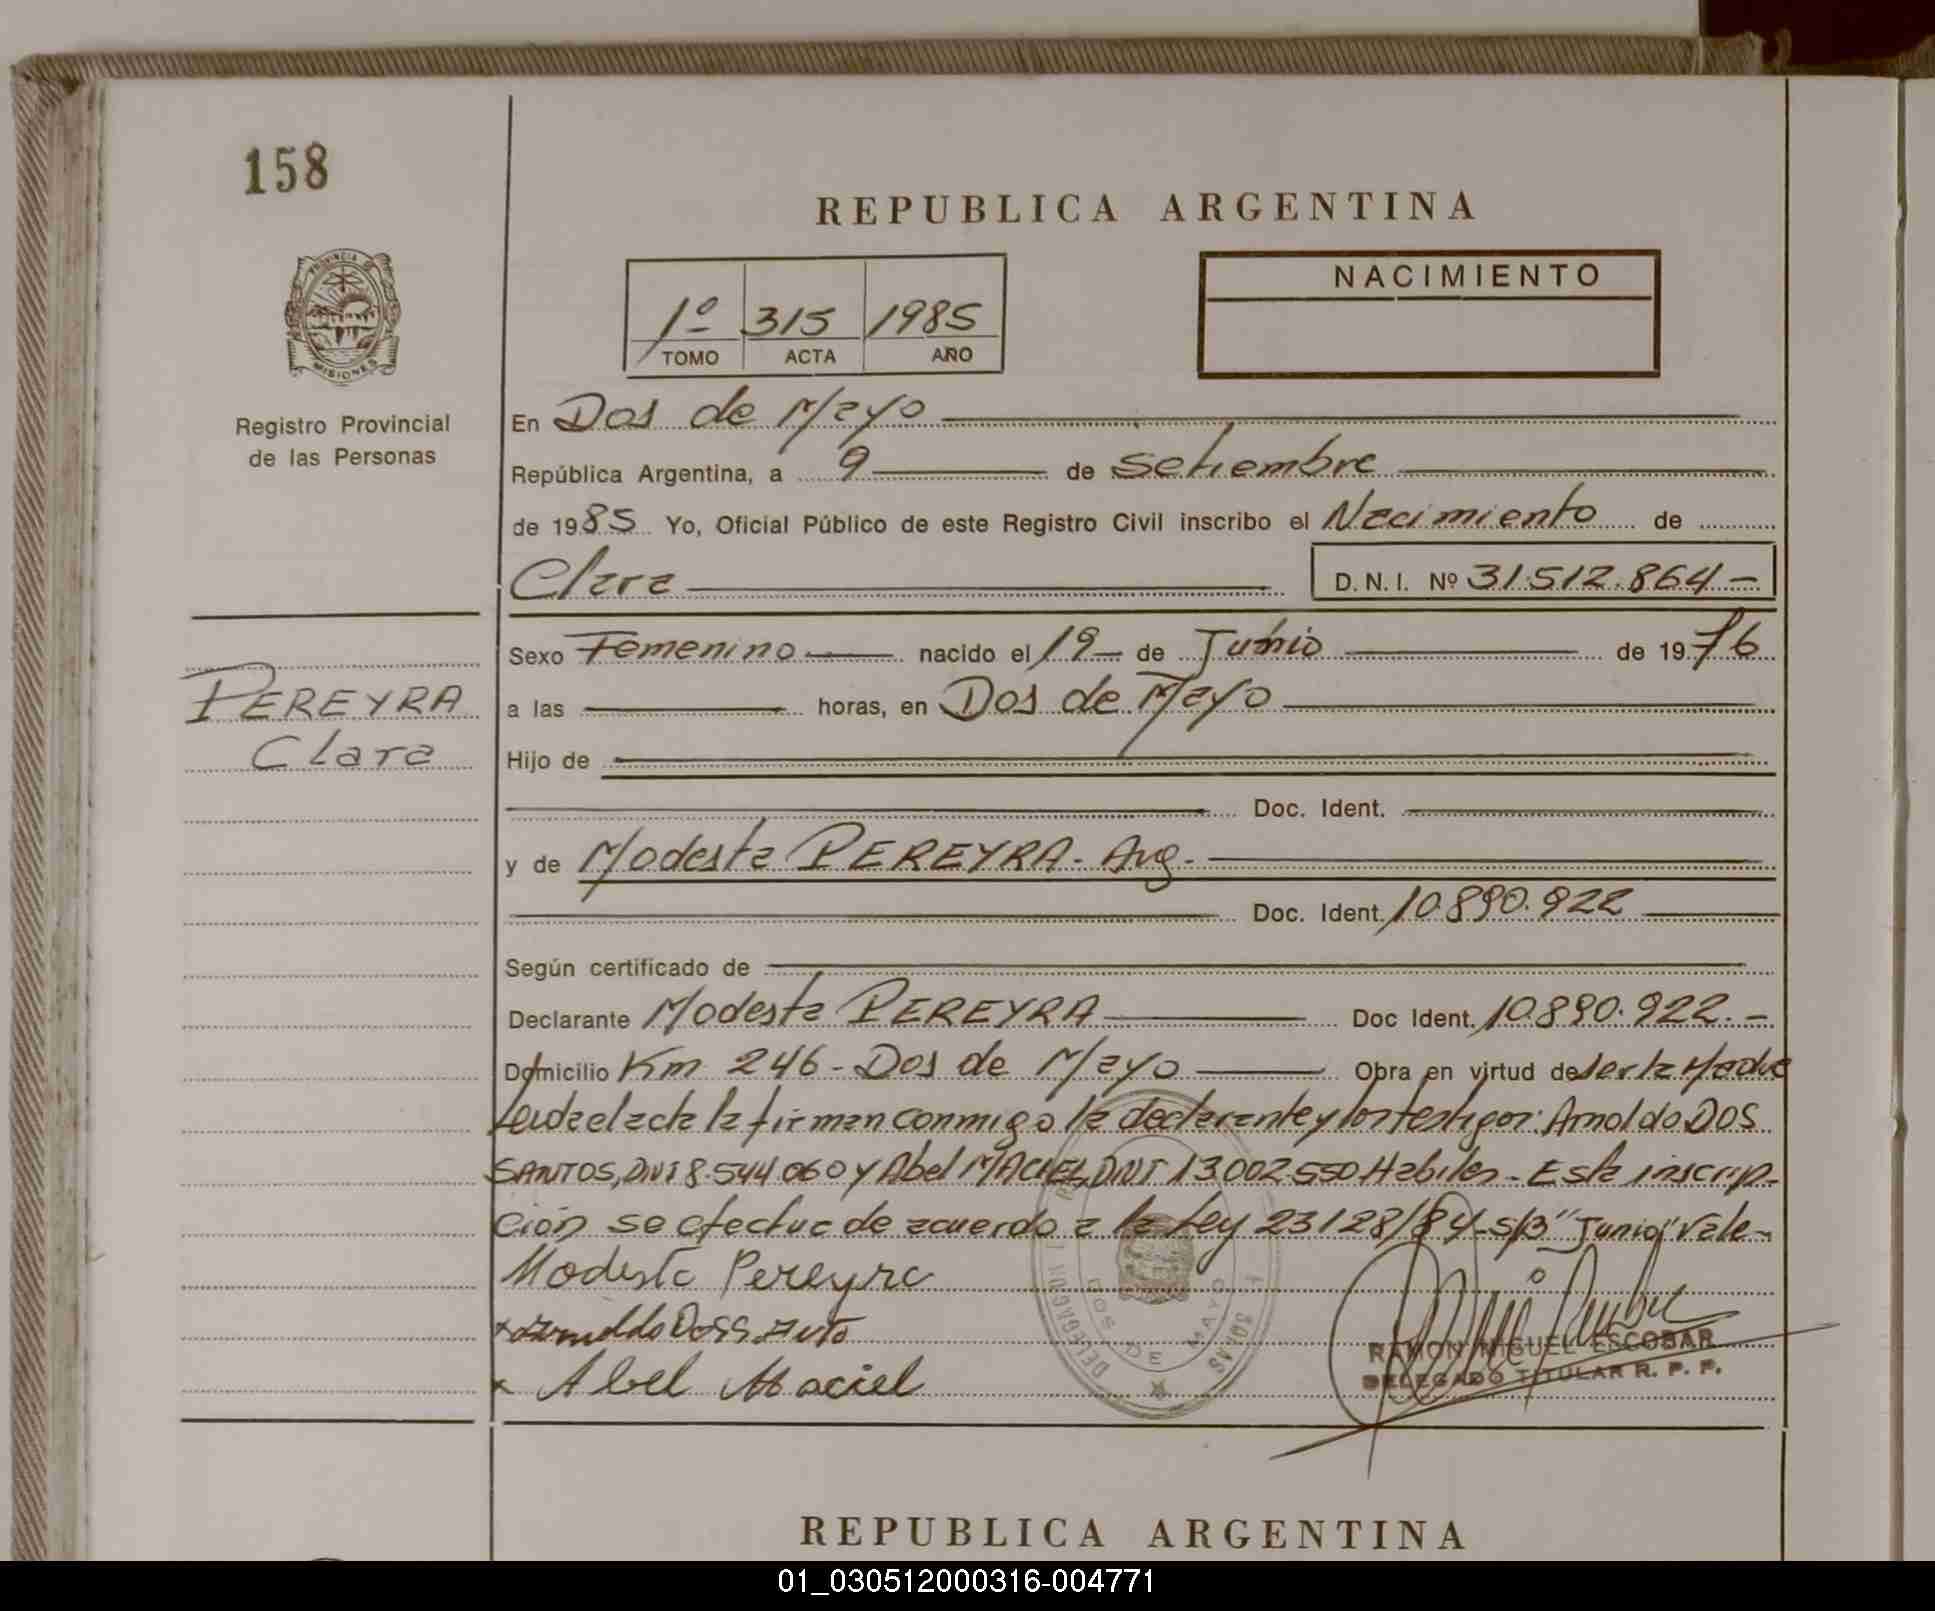 158
REPUBLICA ARGENTINA
NACIMIENTO
1º 315 1985
TOMO ACTA AÑO
PROVINCIA DE
MISIONES
Registro Provincial
de las Personas
En Dos de Mayo
República Argentina, a 9 de Setiembre
de 1985 Yo, Oficial Público de este Registro Civil inscribo el Nacimiento de
Clara D. N. I. Nº 31.512.864.-
Sexo Femenino nacido el 19 de Junio de 1976
PEREYRA
Clara
a las horas, en Dos de Mayo
Hijo de
Doc. Ident.
y de Modesta PEREYRA. Arg.
Doc. Ident. 10.890.922
Según certificado de
Declarante Modesta PEREYRA Doc Ident. 10.890.922.-
Domicilio Km 246 - Dos de Mayo Obra en virtud de ser la Madre
Leida el acta la firman conmigo la declarante y los testigos: Arnoldo DOS
SANTOS, DNI 8.544.060 y Abel MACIEL, DNI 13.002.550 Habiles - Esta inscrip-
ción se efectua de acuerdo a la Ley 23128/84 - S/B "Junio" Vale -
Modesta Pereyra
x Abel Maciel
DELEGACION
DOS DE MAYO
RAMON MIGUEL ESCOBAR
DELEGADO TITULAR R. P. P.
REPUBLICA ARGENTINA
01_030512000316-004771